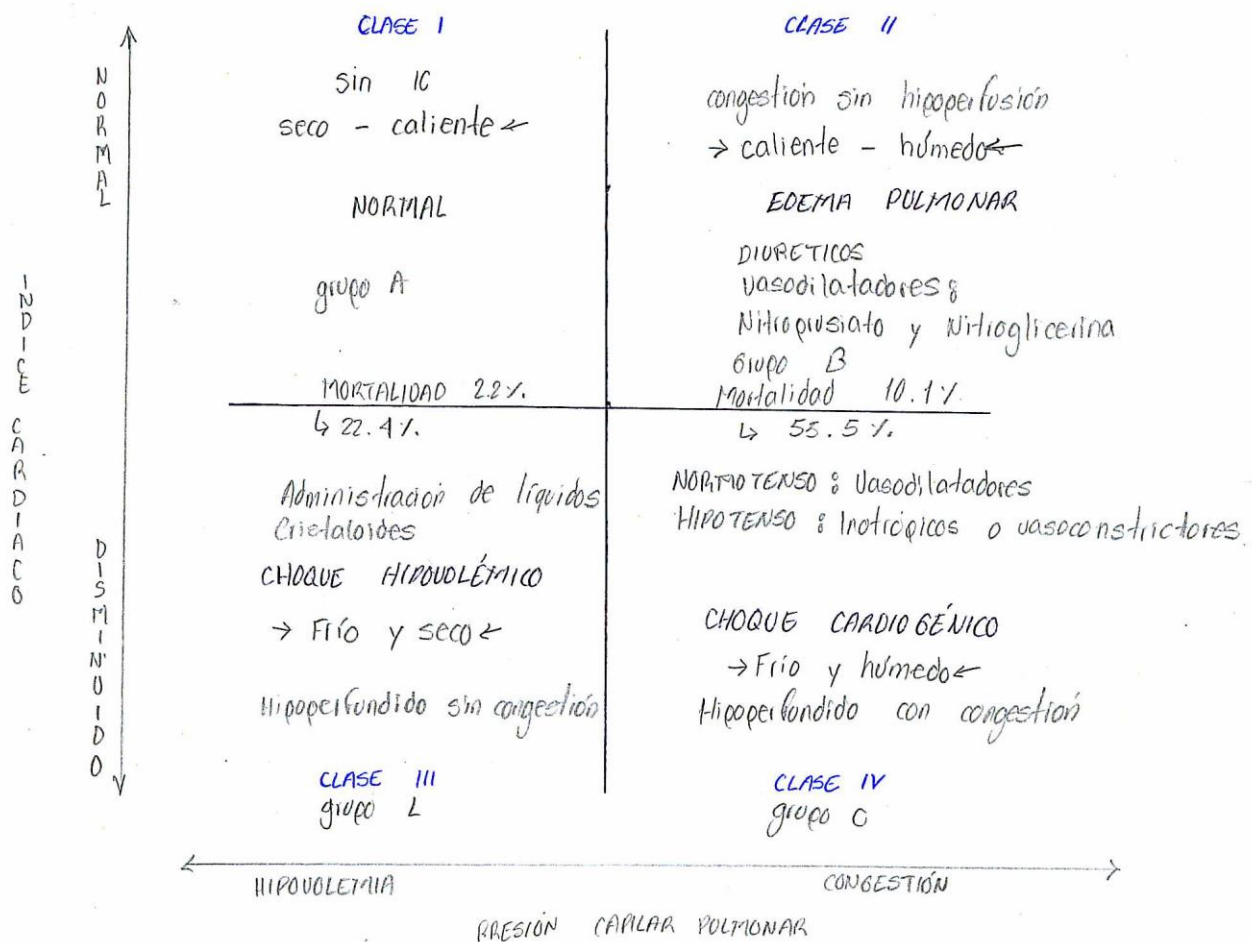 CLASE I
sin IC
seco - caliente ←
NORMAL
grupo A
MORTALIDAD 2.2%.
CLASE II
congestión sin hipoperfusión
→ caliente - húmedo ←
EDEMA PULMONAR
DIURETICOS
Vasodilatadores:
Nitroprusiato y Nitroglicerina
Grupo B
Mortalidad 10.1%
↳ 22.4%.
Administración de líquidos
Cristaloides
CHOQUE HIPOVOLÉMICO
→ Frío y seco ←
Hipoperfundido sin congestión
CLASE III
grupo L
↳ 55.5%.
NORMOTENSO: Vasodilatadores
HIPOTENSO: Inotrópicos o vasoconstrictores.
CHOQUE CARDIOGÉNICO
→ Frío y húmedo ←
Hipoperfundido con congestión
CLASE IV
grupo C
NORMAL
INDICE CARDIACO
DISMINUIDO
HIPOVOLEMIA
CONGESTIÓN
PRESIÓN CAPILAR PULMONAR